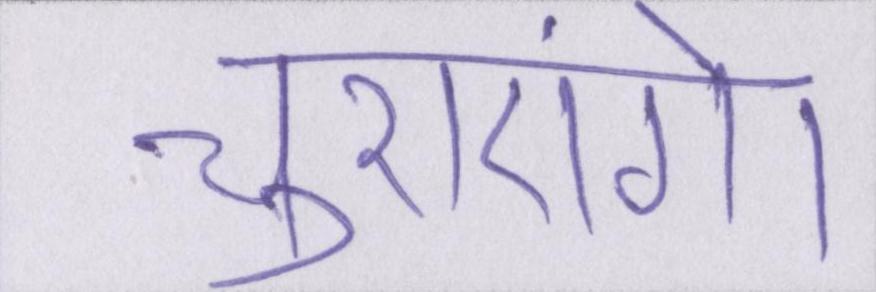 चुराएंगे।